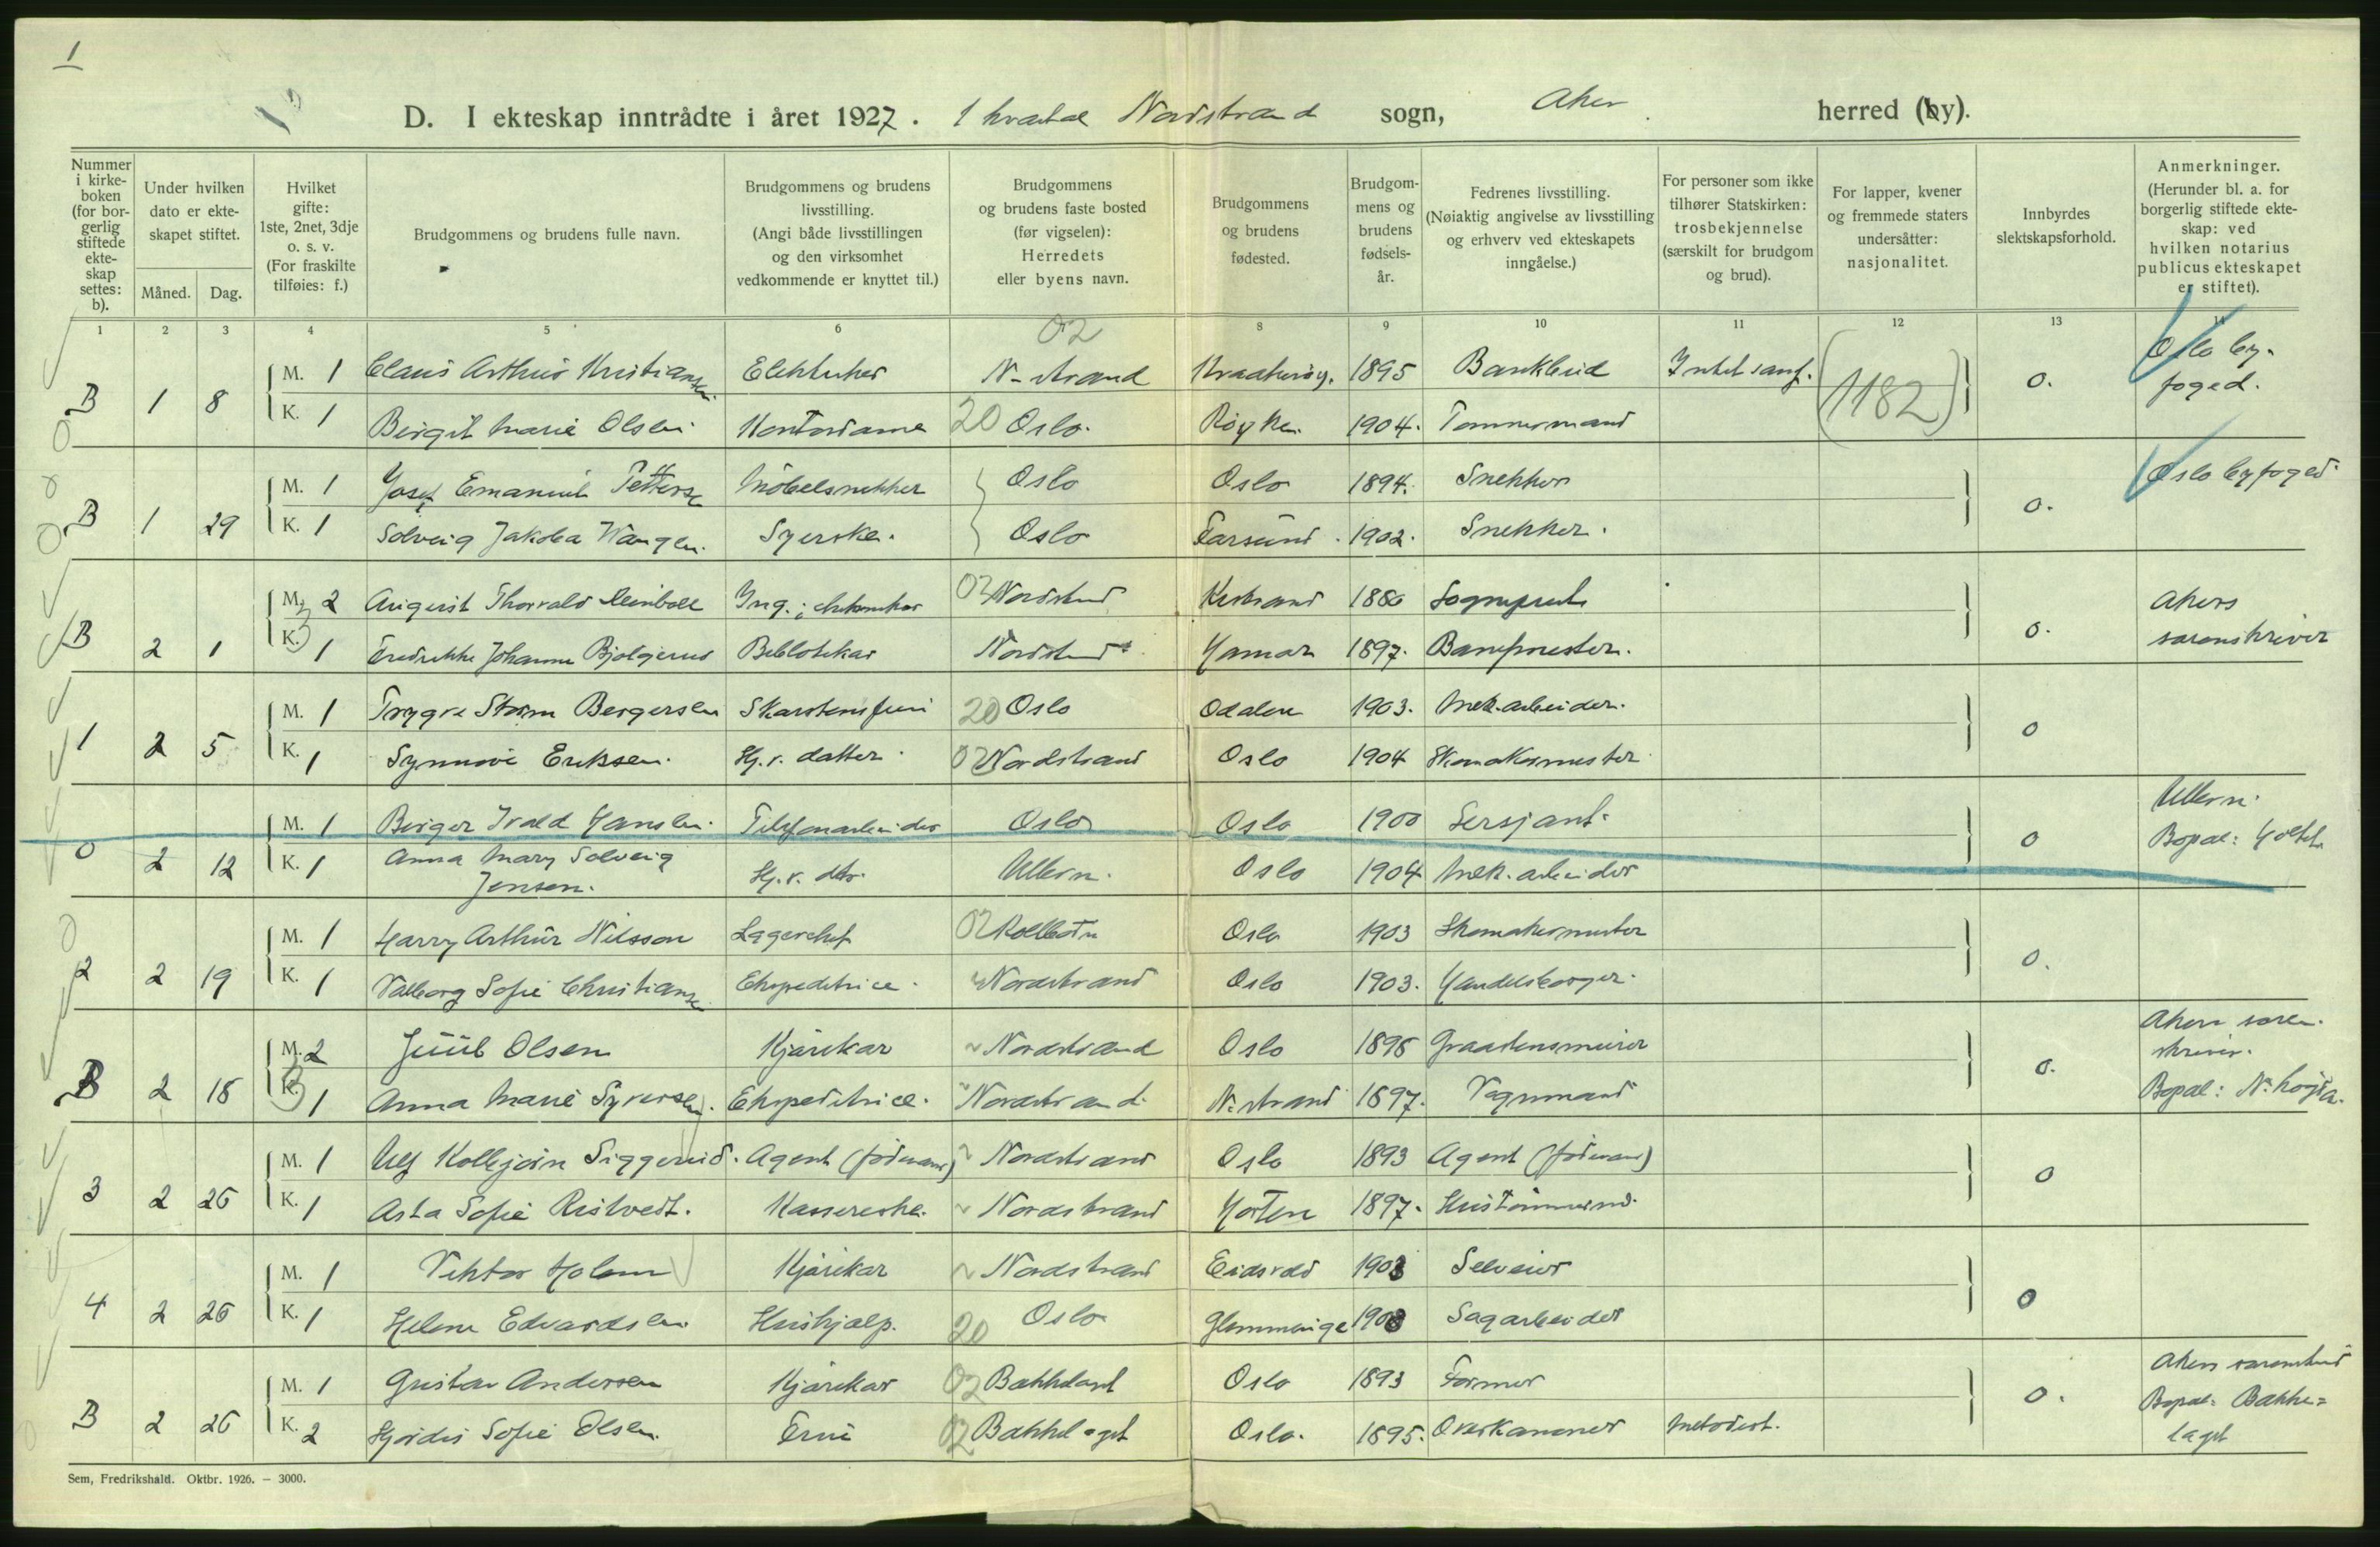 1
D. I ekteskap inntrådte i året 1927. 1 kvartal Nordstrand sogn, Aker herred (by).
Nummer i kirke-boken (for bor-gerlig stiftede ekte-skap settes: b).
Under hvilken dato er ekte-skapet stiftet.
Måned. Dag.
Hvilket gifte: 1ste, 2net, 3dje o. s. v. (For fraskilte tilføies: f.)
Brudgommens og brudens fulle navn.
Brudgommens og brudens livsstilling. (Angi både livsstillingen og den virksomhet vedkommende er knyttet til.)
Brudgommens og brudens faste bosted (før vigselen): Herredets eller byens navn.
Brudgommens og brudens fødested.
Brudgom-mens og brudens fødsels-år.
Fedrenes livsstilling. (Nøiaktig angivelse av livsstilling og erhverv ved ekteskapets inngåelse.)
For personer som ikke tilhører Statskirken: trosbekjennelse (særskilt for brudgom og brud).
For lapper, kvener og fremmede staters undersåtter: nasjonalitet.
Innbyrdes slektskapsforhold.
Anmerkninger. (Herunder bl. a. for borgerlig stiftede ekte-skap: ved hvilken notarius publicus ekteskapet er stiftet).
1 2 3 4 5 6 8 9 10 11 12 13 14
02
M. 1 Claus Arthur Kristiansen N-strand 1895 Oslo by-
B 1 8 (1182) 0. foged.
K. 1 Birgit Marie Olsen Kontordame 20 Oslo. Røyken 1904. Tømmermand
M. 1 Josef Emanuel Petterse Møbelsnekker Oslo Oslo 1894. Snekker Oslo byfoged
B 1 29 0.
K. 1 Solveig Jakoba Wangen. Syerske. Oslo Farsund. 1902. Snekker.
M. 2 August Thorvald 02 Nordstrand 1886 Sogneprest Akers
B 2 1 0. sorenskriver
K. 1 Fredrikke Johanne Bjølgerud Bibliotekar Nordstrand Hamar 1897. Banemester.
M. 1 Trygve Strøm Bergersen Skorstensfeier 20 Oslo Odalen 1903. Mek. arbeider.
1 2 5 0
K. 1 Synnøve Eriksen. Hj. v. datter. 02 Nordstrand Oslo 1904 Skomakermester
M. 1 Birger Ivald Hansen. Telefonarbeider Oslo Oslo 1900 Sersjant. Ullern.
0 2 12 0 Bopæl:
K. 1 Anna Mary Solveig Jensen. Hj. v. dtr. Ullern. Oslo 1904 Mek. arbeider
M. 1 Harry Arthur Nilsson Lagerchef 02 Kolbotn Oslo 1903 Skomakermester
2 2 19 0.
K. 1 Valborg Sofie Christianse Ekspeditrice. Nordstrand Oslo 1903. Handelsborger.
M. 2 Juul Olsen Kjørekar Nordstrand Oslo 1898 Akers soren-
B 2 18 0. skriver.
K. 1 Anna Marie Syversen. Ekspeditrice. Nordstrand N-strand 1897. Vognmand Bopæl:
M. 1 Ulf Siggerud. Agent Nordstrand Oslo 1893 Agent
3 2 26 0
K. 1 Asta Sofie Ristvedt. Kassererske. Nordstrand Horten 1897.
M. 1 Viktor Holam Kjørekar Nordstrand Eidsvold 1903 Selveier
4 2 26 0
K. 1 Helene Edvardsen Hushjelp. 20 Oslo Glemminge 1903 Sagarbeider
M. 1 Gustav Andersen Kjørekar 02 Bækkelaget Oslo 1893 Former Akers
B 2 26 0. Bopæl: Bække=
K. 2 Hjørdis Sofie Olsen. Frue 02 Bækkelaget Oslo. 1895. Overkanoner Metodist. laget
Sem, Fredrikshald. Oktbr. 1926. — 3000.